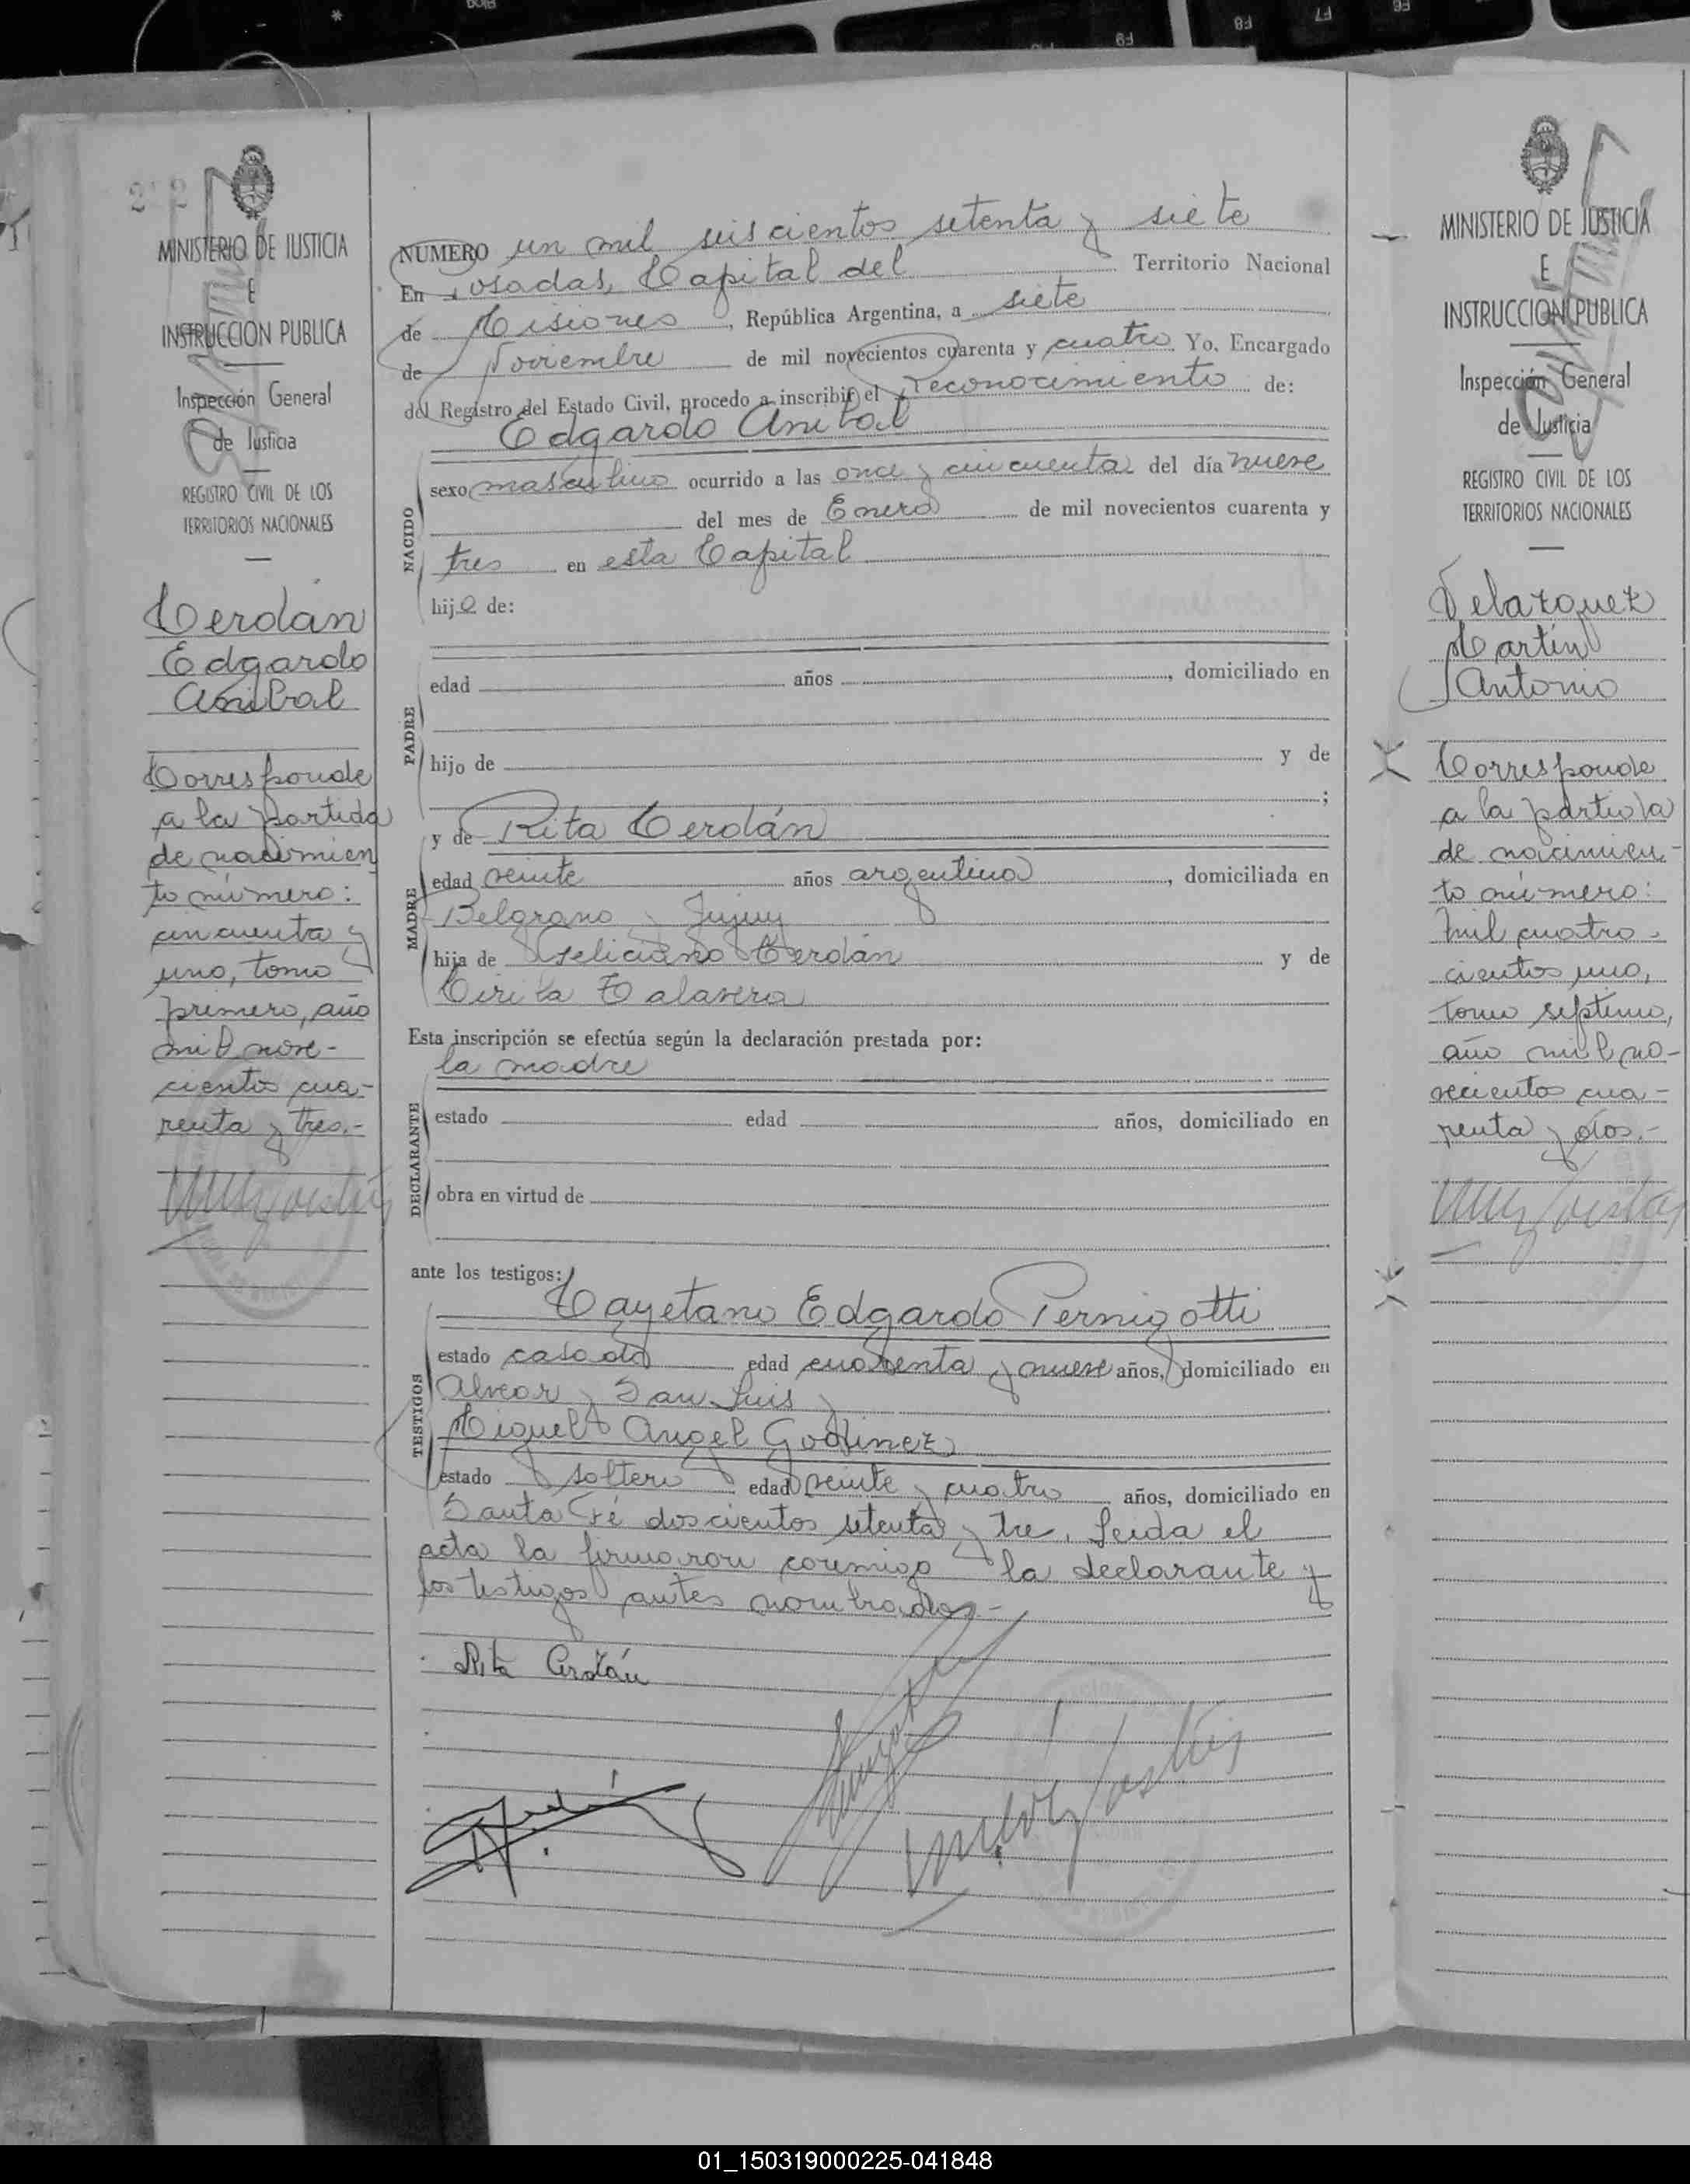 MINISTERIO DE JUSTICIA
E
INSTRUCCION PUBLICA
Inspección General
de Justicia
REGISTRO CIVIL DE LOS
TERRITORIOS NACIONALES
Cerdán
Edgardo
Anibal
Corresponde
a la partida
de nacimien
to número:
cincuenta y
uno, tomo
primero, año
mil nove-
cientos cua-
renta y tres.-
NUMERO un mil seiscientos setenta y siete
En Posadas, Capital del Territorio Nacional
de Misiones, República Argentina, a siete
de Noviembre de mil novecientos cuarenta y cuatro Yo, Encargado
del Registro del Estado Civil, procedo a inscribir el Reconocimiento de:
Edgardo Anibal
NACIDO
sexo masculino ocurrido a las once y cincuenta del día nueve
del mes de Enero de mil novecientos cuarenta y
tres en esta Capital
hijo de:
PADRE
edad años , domiciliado en
hijo de y de
;
y de Rita Cerdán
MADRE
edad veinte años argentina, domiciliada en
Belgrano y Jujuy
hija de Feliciano Cerdán y de
Cirila Talavera
Esta inscripción se efectúa según la declaración prestada por:
la madre
DECLARANTE
estado edad años, domiciliado en
obra en virtud de
ante los testigos:
Cayetano Edgardo Pernigotti
TESTIGOS
estado casado edad cuarenta y nueve años, domiciliado en
Alvear y San Luis y
Miguel Angel Godinez
estado soltero edad veinte y cuatro años, domiciliado en
Santa Fé doscientos setenta y tre. Leida el
acta la firmaron conmigo la declarante y
los testigos antes nombrados.-
Rita Cerdán
MINISTERIO DE JUSTICIA
E
INSTRUCCION PUBLICA
Inspección General
de Justicia
REGISTRO CIVIL DE LOS
TERRITORIOS NACIONALES
Velazquez
Martín
Antonio
Corresponde
a la partida
de nacimien-
to número:
mil cuatro-
cientos uno,
tomo septimo,
año mil no-
vecientos cua-
renta y dos.-
01_150319000225-041848